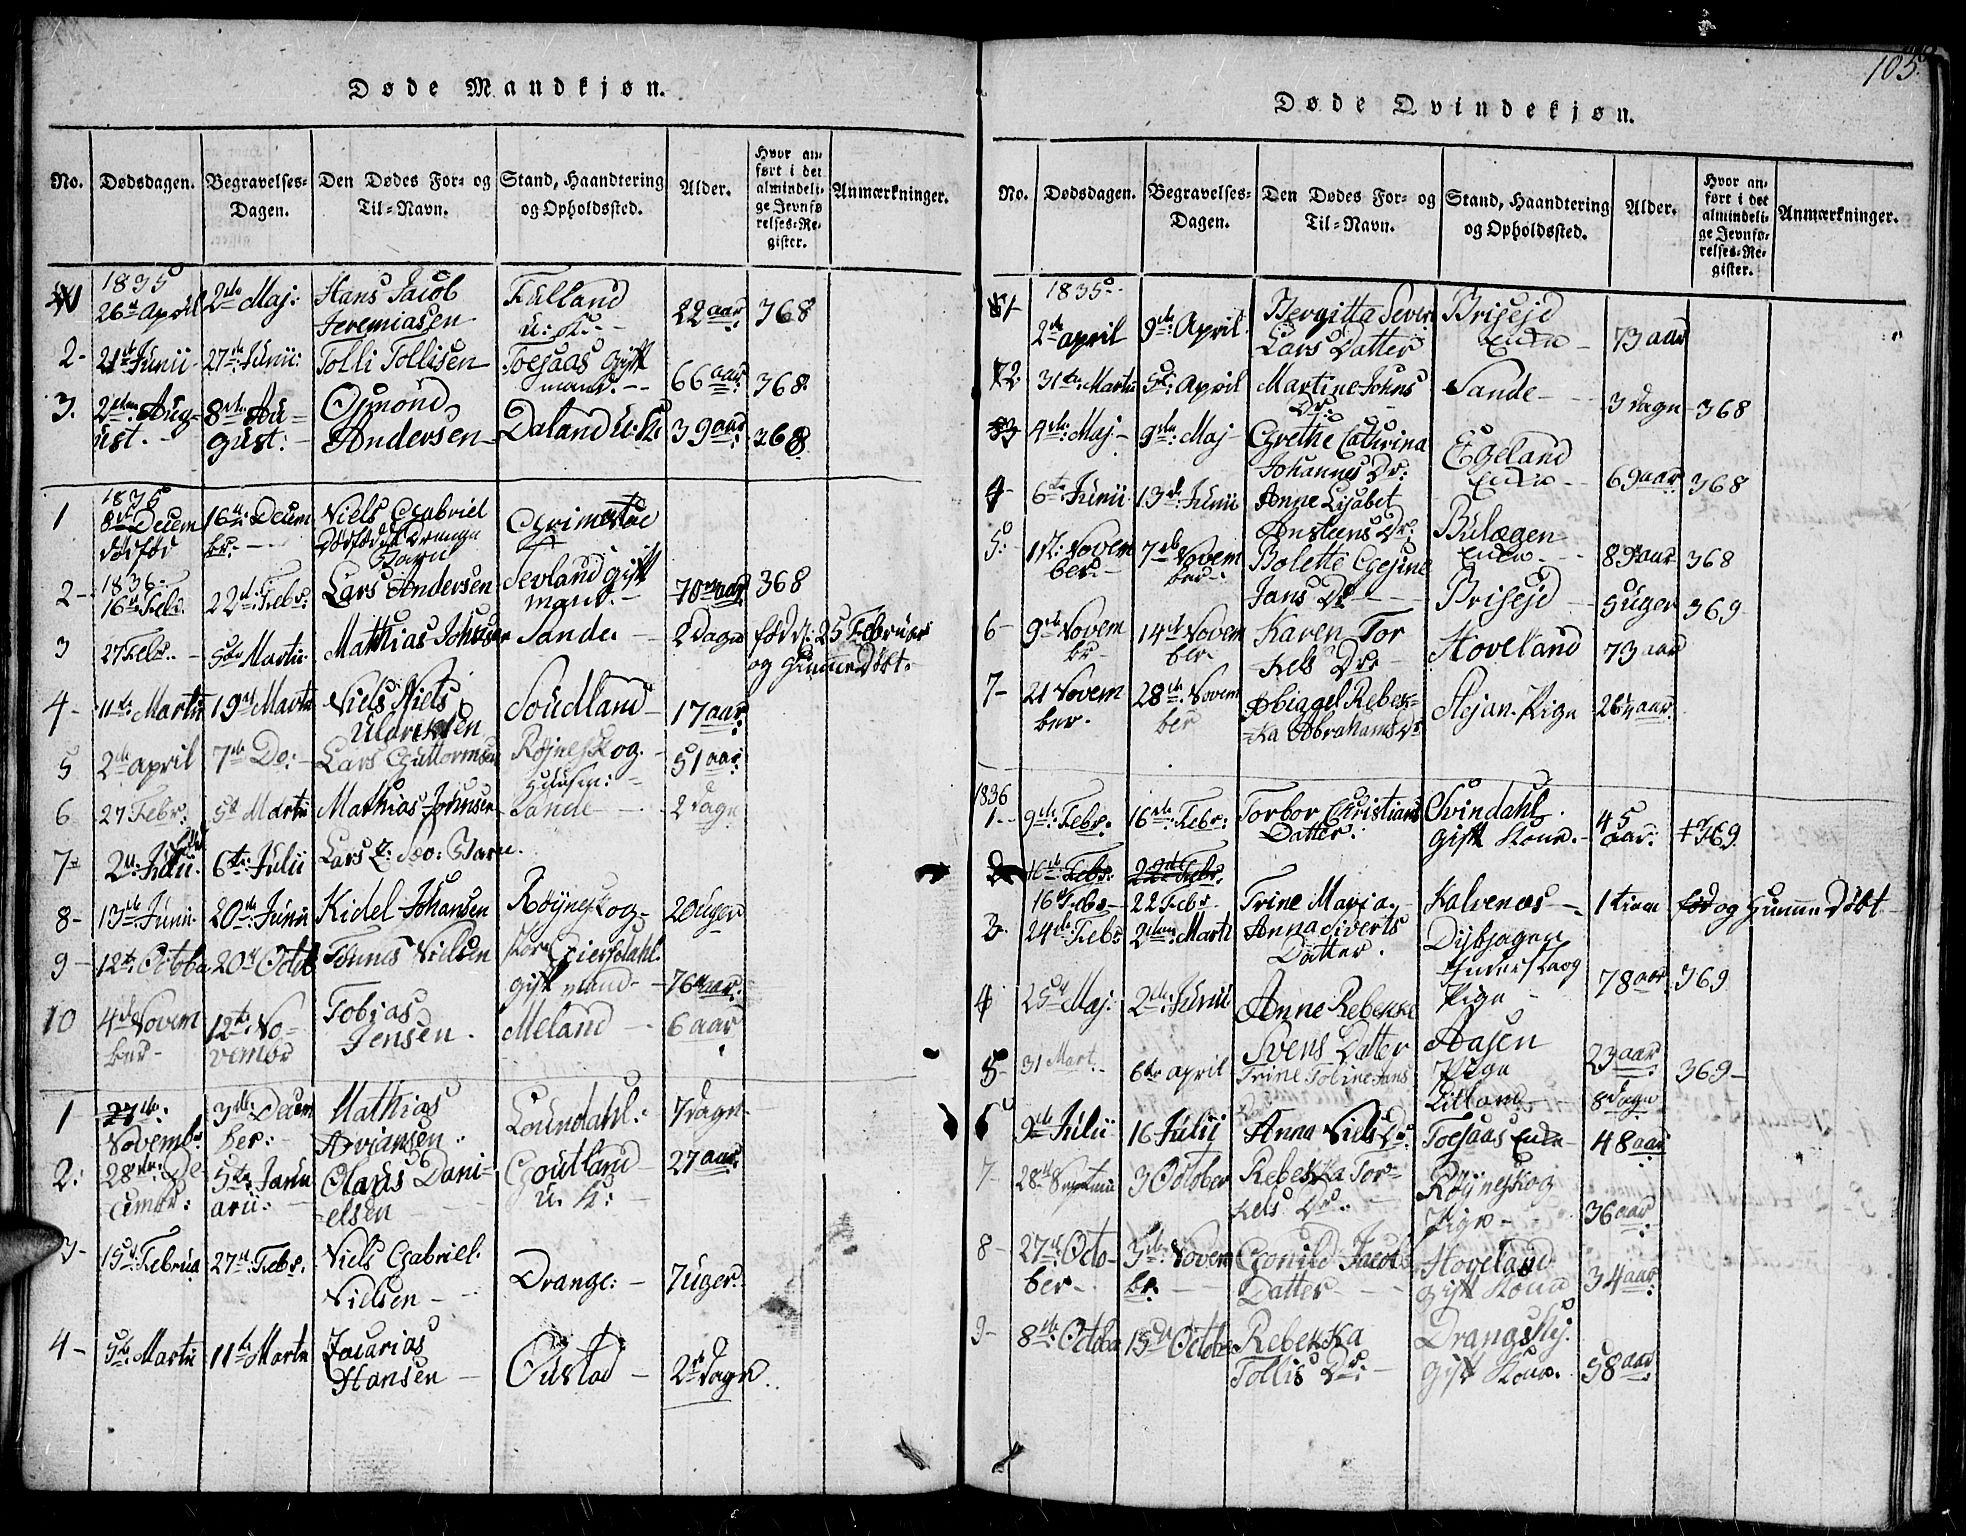 Døde Mandkjøn.
No. Dødsdagen. Begravelses-Dagen. Den Dødes For- og Til-Navn. Stand, Haandtering og Opholdssted. Alder. Hvor anført i det almindelige Jevnførelses-Register. Anmærkninger.
1835
26de April 2de Maj: Hans Jacob Fulland 22 aar 368
Jeremiasen u: K:
2- 21de Junii 27de Junii: Tolli Tollisen Toesaas Gift 66 aar: 368
mand.
3. 2den Aug- 8de Au- Osmond Daland u: K: 39 aar 368
ust. gust: Andersen
1835
1 8de Decem 16de Decem Niels Gabriel Grimestad
dødfød br. Dødfød Drenge
Barn
1836
2- 16de Febr. 22de Febr: Lars Andersen Sevland gift 70 aar 368
mand
3 27 Febr. 5te Martii Mathias Johnsen Sande 2 Dage født d: 25 Februar
og Hiemmedøbt
4- 11te Martii 19de Martii Niels Niels Soudland 17 aar
Uldriksen
5 2de April 7de Do: Lars Guttormsen Røjneskog 51 aar
Huusm:
6 27 Febr: 5te Martii Mathias Johnsen Sande 2 Dage
7 2de Julii 6te Julii Lars Barn
8- 13de Junii 20de Junii Kidel Johansen Røyneskog 20 Uger
9- 12te Octobr 20de Octbr Tønnes Nielsen
gift mand 76 aar
10 4de Novem 12te No- Tobias Meland 6 aar
ber- vembr Jensen
1 27de: 3de: Decem Mathias Loundahl: 7 Dage
Novembr ber: Arviansen
2: 28de: De 5te Janu Olaus Dani- Goutland 27 aar:
cembr: arii: elsen u. K:
3- 15de Februa 27de Febr. Niels Gabriel Drange: 7 Uger:
Nielsen
4- 5te Martii 11te Martii Zacarias Oustad 2 Dage
Hansen
105.
Døde Qvindekjøn.
No. Dødsdagen. Begravelses-Dagen. Den Dødes For- og Til-Navn. Stand, Haandtering og Opholdssted. Alder. Hvor anført i det almindelige Jevnførelses-Register. Anmærkninger.
1835
1 2de april 9de April. Bergitta Severi Brisejd 73 aar
Lars Datter Enke
2. 31te Martii 5te April Martine Johns Sande 3 Dage 368
Dr:
3 4de Maj 9de Maj Grethe Cathrina Egeland 69 aar 368
Johannes Dr: Enke
4- 6te Junii 13de Junii Anne Lisabet Bulægen 89 aar 368
Ansteens Dr: Enke
5: 1ste Novem 7de Novem Bolette Gesine Brisejd 5 Uger 369
ber ber Jans Dr
6- 9de Novem 14de Novem Karen Tor Hoveland 73 aar
br ber kels Dr
7- 21 Novem 28de Novem Abigael Rebek- Stejan Pige 26 aar
ber. ber ka Abrahams Dr
1836
1- 9de Febr. 16de Febr: Torbor Christians Svindahl 45 369
Datter: gift Kone aar:
2 16de Febr. 22de Febr.
16 Febr 22 Febr Trine Maria Kalvenæs 1 time fød og Hiemmedøbt
3. 24de Febr 2den Marti Anna Siverts Dybsagen
Datter. Inderskaag 78 aar 369
4 25de Maj. 2de Junii Anne Rebekke Pige
Svens Datter Aasen 23 aar
5- 31 Mart. 6te april Trine Toline Jans Pige 369
Litland 8 Dage
9de Julii 16 Julii Anna Niels Dr: Toesaas Enke 48 aar
7- 28de Septem 3 October Rebekka Tor- Røyneskog 36 aar
kels Dr: Pige
8- 27de Octo- 5te Novem Gonild Jacobs Hoveland 34 aar:
ber br. Datter gift Kone
9- 8de Octobr 15de Octobr Rebekka Drangshej. 58 aar
Tollis Dr: gift Kone.